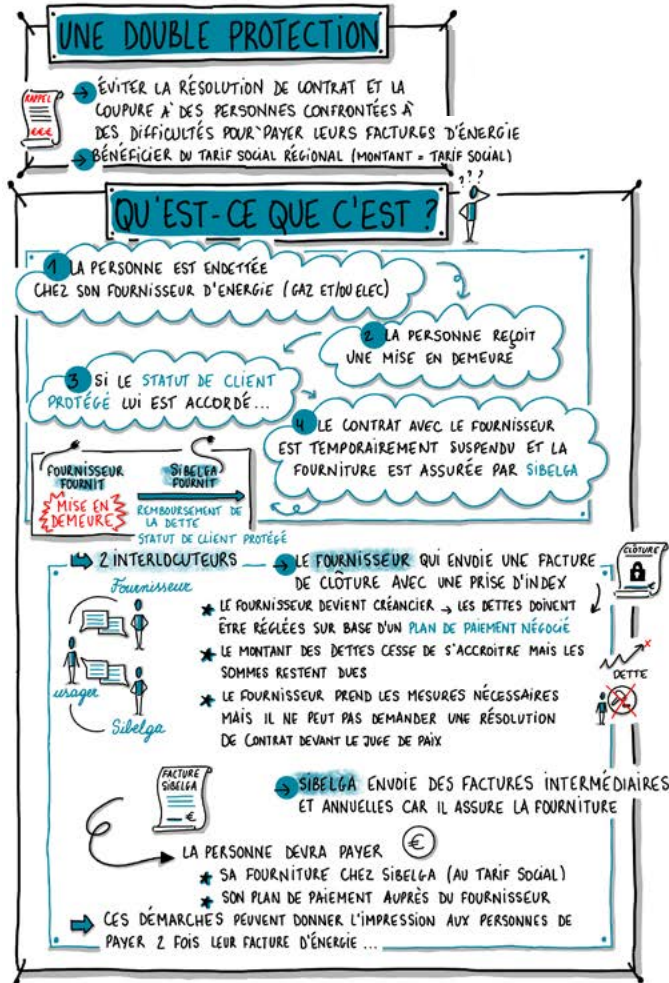 UNE DOUBLE PROTECTION
RAPPEL
€€€
→ ÉVITER LA RÉSOLUTION DE CONTRAT ET LA
COUPURE À DES PERSONNES CONFRONTÉES À
DES DIFFICULTÉS POUR PAYER LEURS FACTURES D'ÉNERGIE
→ BÉNÉFICIER DU TARIF SOCIAL RÉGIONAL (MONTANT = TARIF SOCIAL)
QU'EST-CE QUE C'EST ?
???
1 LA PERSONNE EST ENDETTÉE
CHEZ SON FOURNISSEUR D'ENERGIE (GAZ ET/OU ELEC)
2 LA PERSONNE REÇOIT
UNE MISE EN DEMEURE
3 SI LE STATUT DE CLIENT
PROTÉGÉ LUI EST ACCORDÉ...
4 LE CONTRAT AVEC LE FOURNISSEUR
EST TEMPORAIREMENT SUSPENDU ET LA
FOURNITURE EST ASSURÉE PAR SIBELGA
FOURNISSEUR
FOURNIT
MISE EN
DEMEURE
SIBELGA
FOURNIT
REMBOURSEMENT DE
LA DETTE
STATUT DE CLIENT PROTÉGÉ
2 INTERLOCUTEURS
Fournisseur
usager
Sibelga
→ LE FOURNISSEUR QUI ENVOIE UNE FACTURE
DE CLÔTURE AVEC UNE PRISE D'INDEX
CLÔTURE
€
★ LE FOURNISSEUR DEVIENT CRÉANCIER → LES DETTES DOIVENT
ÊTRE RÉGLÉES SUR BASE D'UN PLAN DE PAIEMENT NÉGOCIÉ
★ LE MONTANT DES DETTES CESSE DE S'ACCROITRE MAIS LES
SOMMES RESTENT DUES
DETTE
★ LE FOURNISSEUR PREND LES MESURES NÉCESSAIRES
MAIS IL NE PEUT PAS DEMANDER UNE RÉSOLUTION
DE CONTRAT DEVANT LE JUGE DE PAIX
FACTURE
SIBELGA
€
→ SIBELGA ENVOIE DES FACTURES INTERMÉDIAIRES
ET ANNUELLES CAR IL ASSURE LA FOURNITURE
LA PERSONNE DEVRA PAYER €
★ SA FOURNITURE CHEZ SIBELGA (AU TARIF SOCIAL)
★ SON PLAN DE PAIEMENT AUPRÈS DU FOURNISSEUR
CES DÉMARCHES PEUVENT DONNER L'IMPRESSION AUX PERSONNES DE
PAYER 2 FOIS LEUR FACTURE D'ÉNERGIE ...